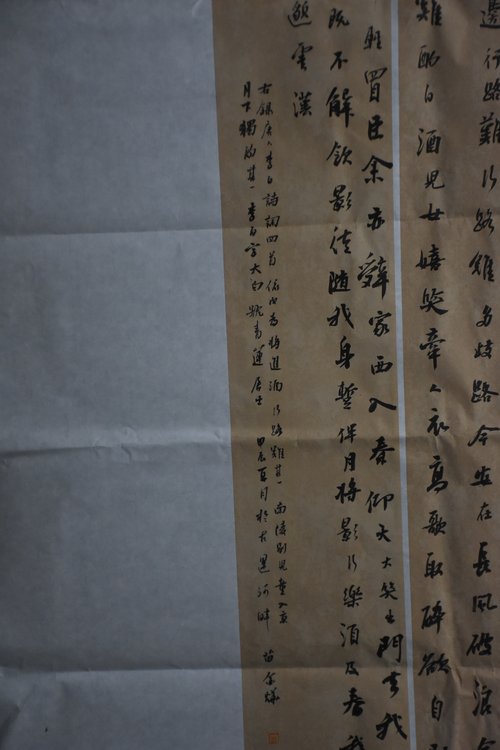 邊行路難行路難多歧路今安在長風破浪會
雞酌白酒兒女嬉笑牽人衣高歌取醉欲自
買臣余亦辭家西入秦仰天大笑出門去我
既不解飲影徒隨我身暫伴月將影行樂須及春我
邈雲漢
右錄唐人李白詩詞四首依次為將進酒行路難其一南陵別兒童入京
月下獨酌其一李白字太白號青蓮居士甲辰夏月於古運河畔